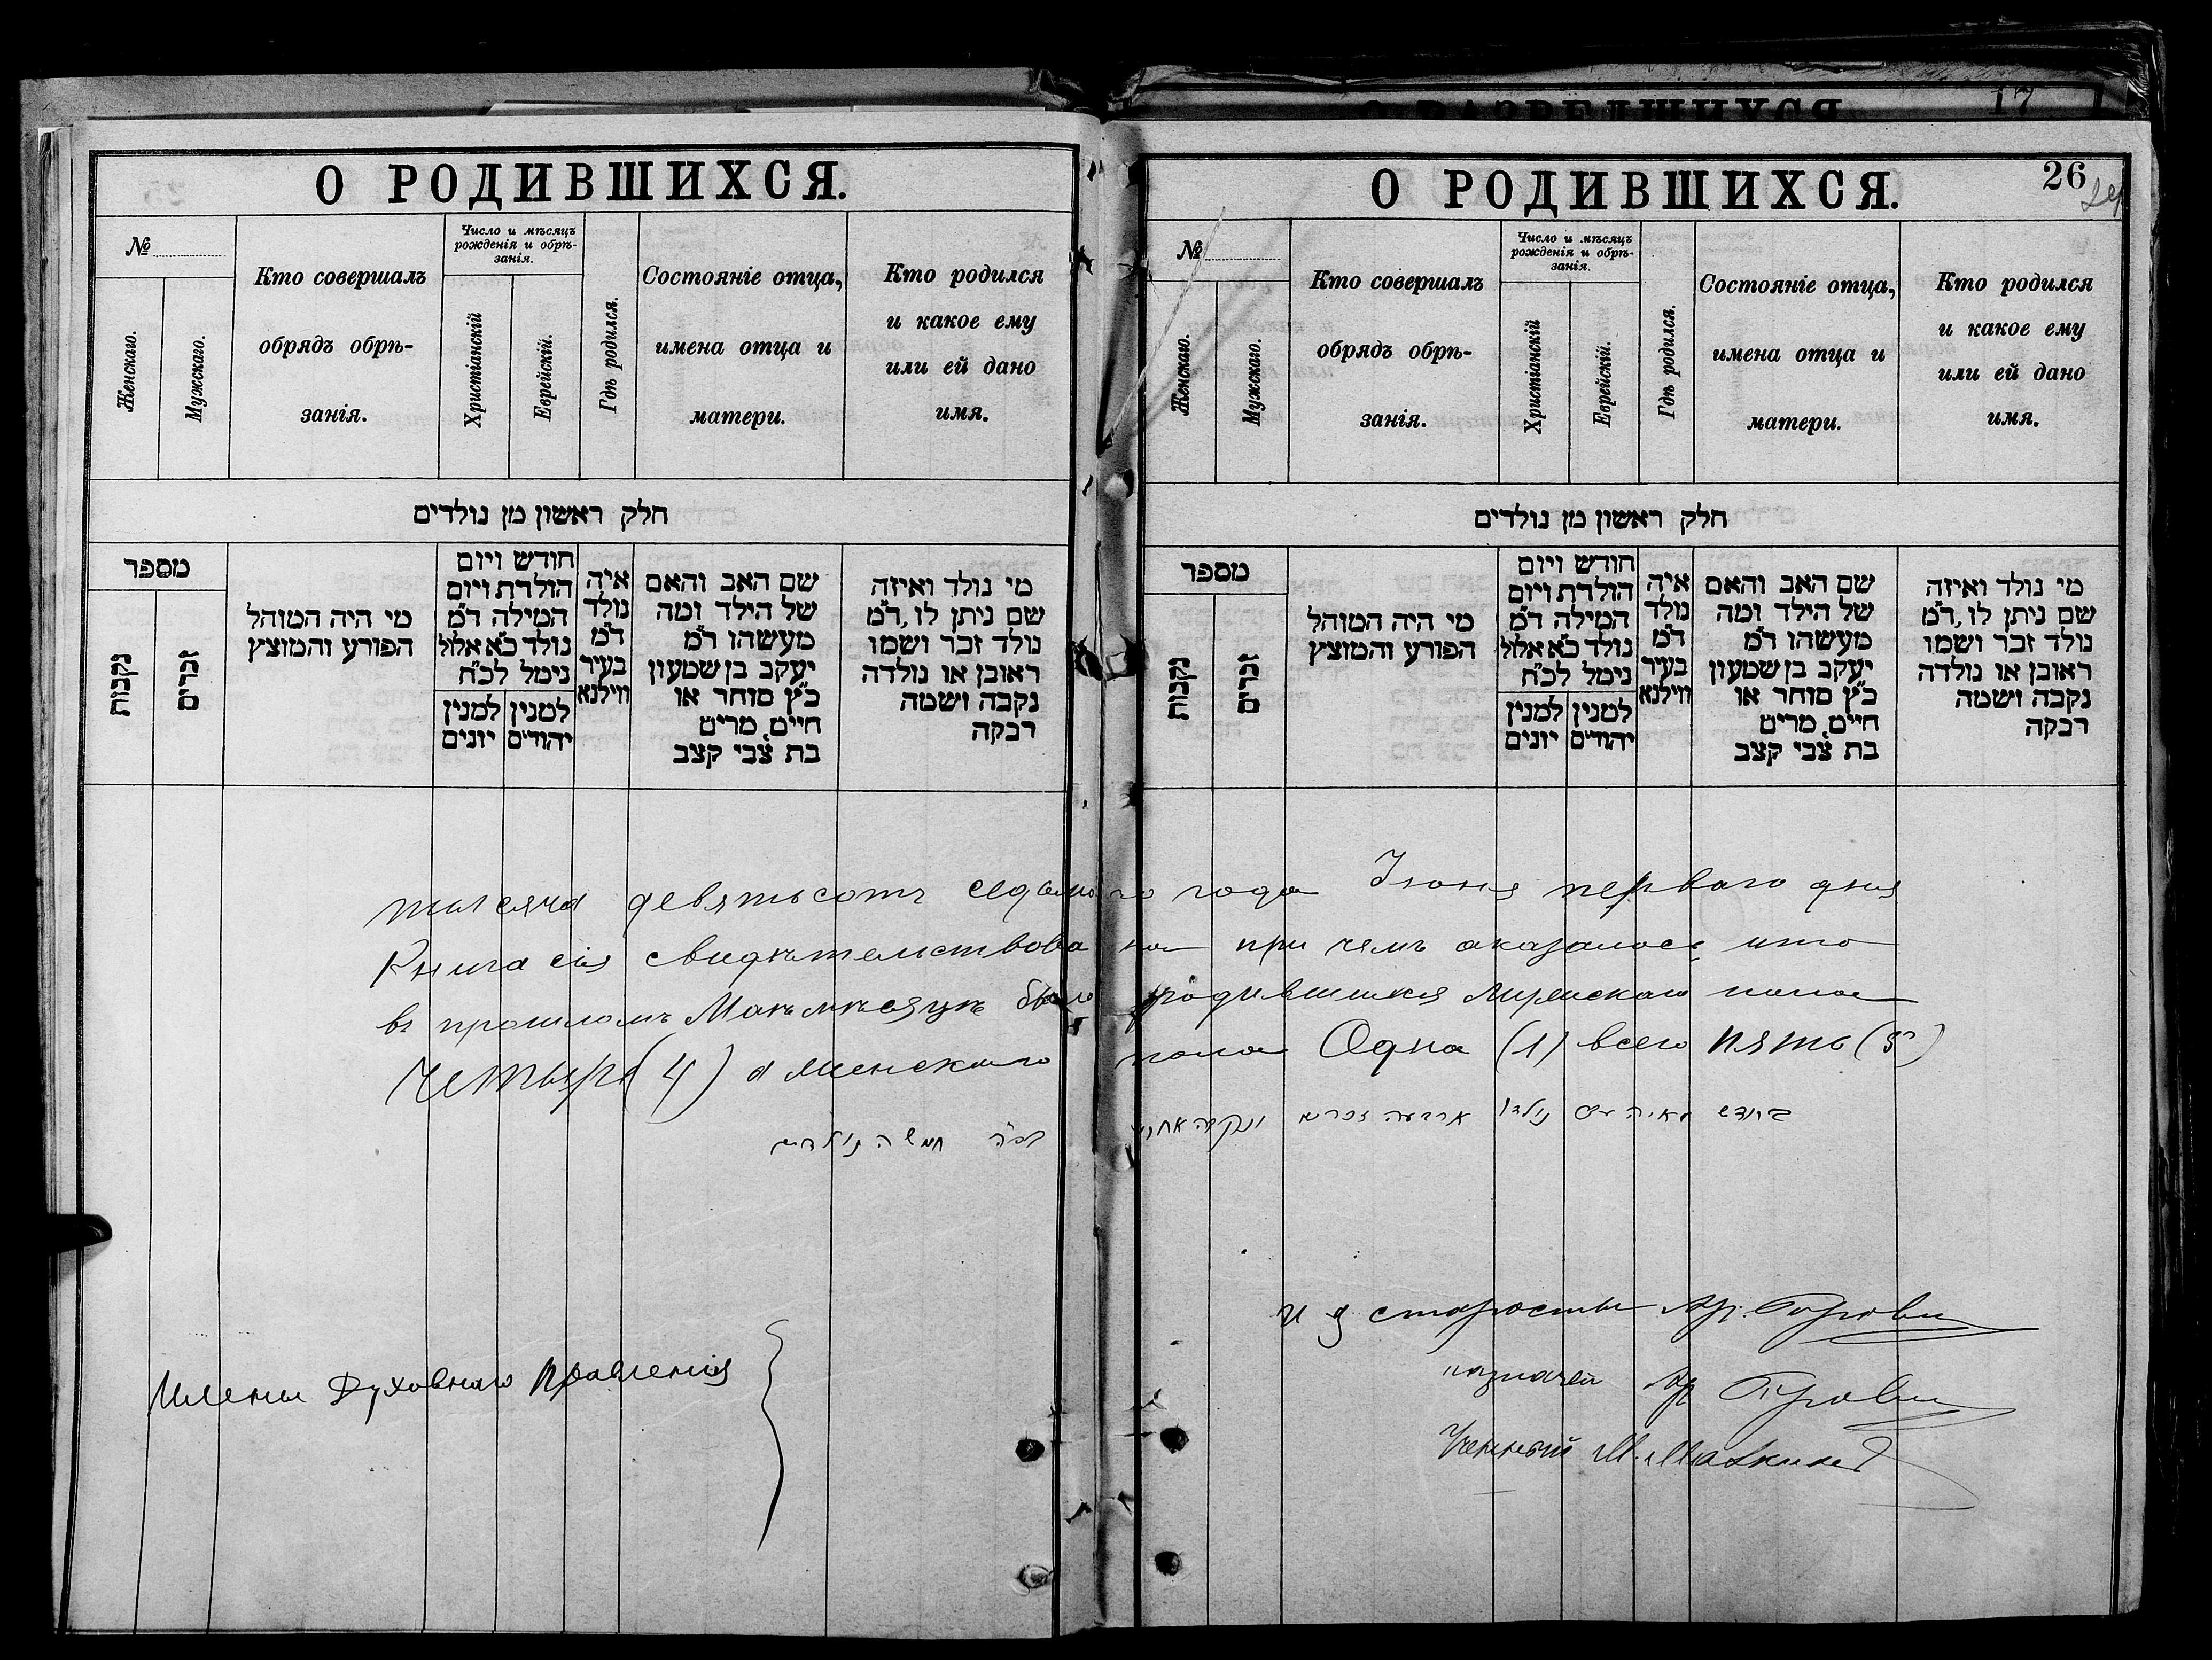 17
О РОДИВШИХСЯ.
№
Женскаго.
Мужскаго.
Кто совершалъ
обрядъ обрѣ-
занія.
Число и мѣсяцъ
рожденія и обрѣ-
занія.
Христіанскій
Еврейскій.
Гдѣ родился.
Состояніе отца,
имена отца и
матери.
Кто родился
и какое ему
или ей дано
имя.
חלק ראשון מן נולדים
מספר
נקבות
זכרים
מי היה המוהל
הפורע והמוצץ
חודש ויום
הולדת ויום
המילה ד״מ
נולד כ״א אלול
נימל לכ״ח
למנין
יונים
למנין
יהודים
איה
נולד
ד״מ
בעיר
ווילנא
שם האב והאם
של הילד ומה
מעשהו ד״מ
יעקב בן שמעון
כ״ץ סוחר או
חיים, מרים
בת צבי קצב
מי נולד ואיזה
שם ניתן לו, ד״מ
נולד זכר ושמו
ראובן או נולדה
נקבה ושמה
רבקה
О РОДИВШИХСЯ.
26
№
Женскаго.
Мужскаго.
Кто совершалъ
обрядъ обрѣ-
занія.
Число и мѣсяцъ
рожденія и обрѣ-
занія.
Христіанскій
Еврейскій.
Гдѣ родился.
Состояніе отца,
имена отца и
матери.
Кто родился
и какое ему
или ей дано
имя.
חלק ראשון מן נולדים
מספר
נקבות
זכרים
מי היה המוהל
הפורע והמוצץ
חודש ויום
הולדת ויום
המילה ד״מ
נולד כ״א אלול
נימל לכ״ח
למנין
יונים
למנין
יהודים
איה
נולד
ד״מ
בעיר
ווילנא
שם האב והאם
של הילד ומה
מעשהו ד״מ
יעקב בן שמעון
כ״ץ סוחר או
חיים, מרים
בת צבי קצב
מי נולד ואיזה
שם ניתן לו, ד״מ
נולד זכר ושמו
ראובן או נולדה
נקבה ושמה
רבקה
тысяча девятьсотъ седьмого года Іюня перваго дня
Книга сія свидѣтельствована при чемъ оказалось что
въ прошломъ Маѣ мѣсяцѣ было родившихся мужскаго пола
Четыре (4) а женскаго пола Одна (1) всего пять (5)
בחודש נולדו ארבעה זכרים ונקבה אחת
חמשה נולדים
Члены Духовнаго Правленія
и д старосты
казначей
Ученный М.